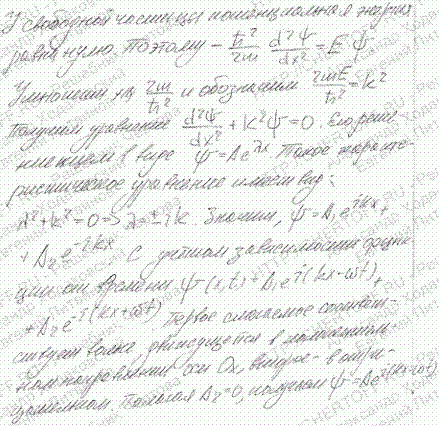 У свободной частицы потенциальная энергия
равна нулю. Поэтому - ħ²/2m d²Ψ/dx² = EΨ.
Умножим на 2m/ħ² и обозначим 2mE/ħ² = k²
Получим уравнение d²Ψ/dx² + k²Ψ = 0. Его реше-
ние ищем в виде Ψ = Ae^λx. Такое характе-
ристическое уравнение имеет вид:
λ² + k² = 0 => λ = ± ik. Значит, Ψ = A₁e^ikx +
+ A₂e^-ikx. С учётом зависимости функ-
ции от времени Ψ(x,t) = A₁e^i(kx-ωt) +
+ A₂e^-i(kx+ωt). Первое слагаемое соответ-
ствует волне, движущейся в положитель-
ном направлении оси Ox, второе - в отри-
цательном. Полагая A₂=0, получим Ψ = Ae^i(kx-ωt)